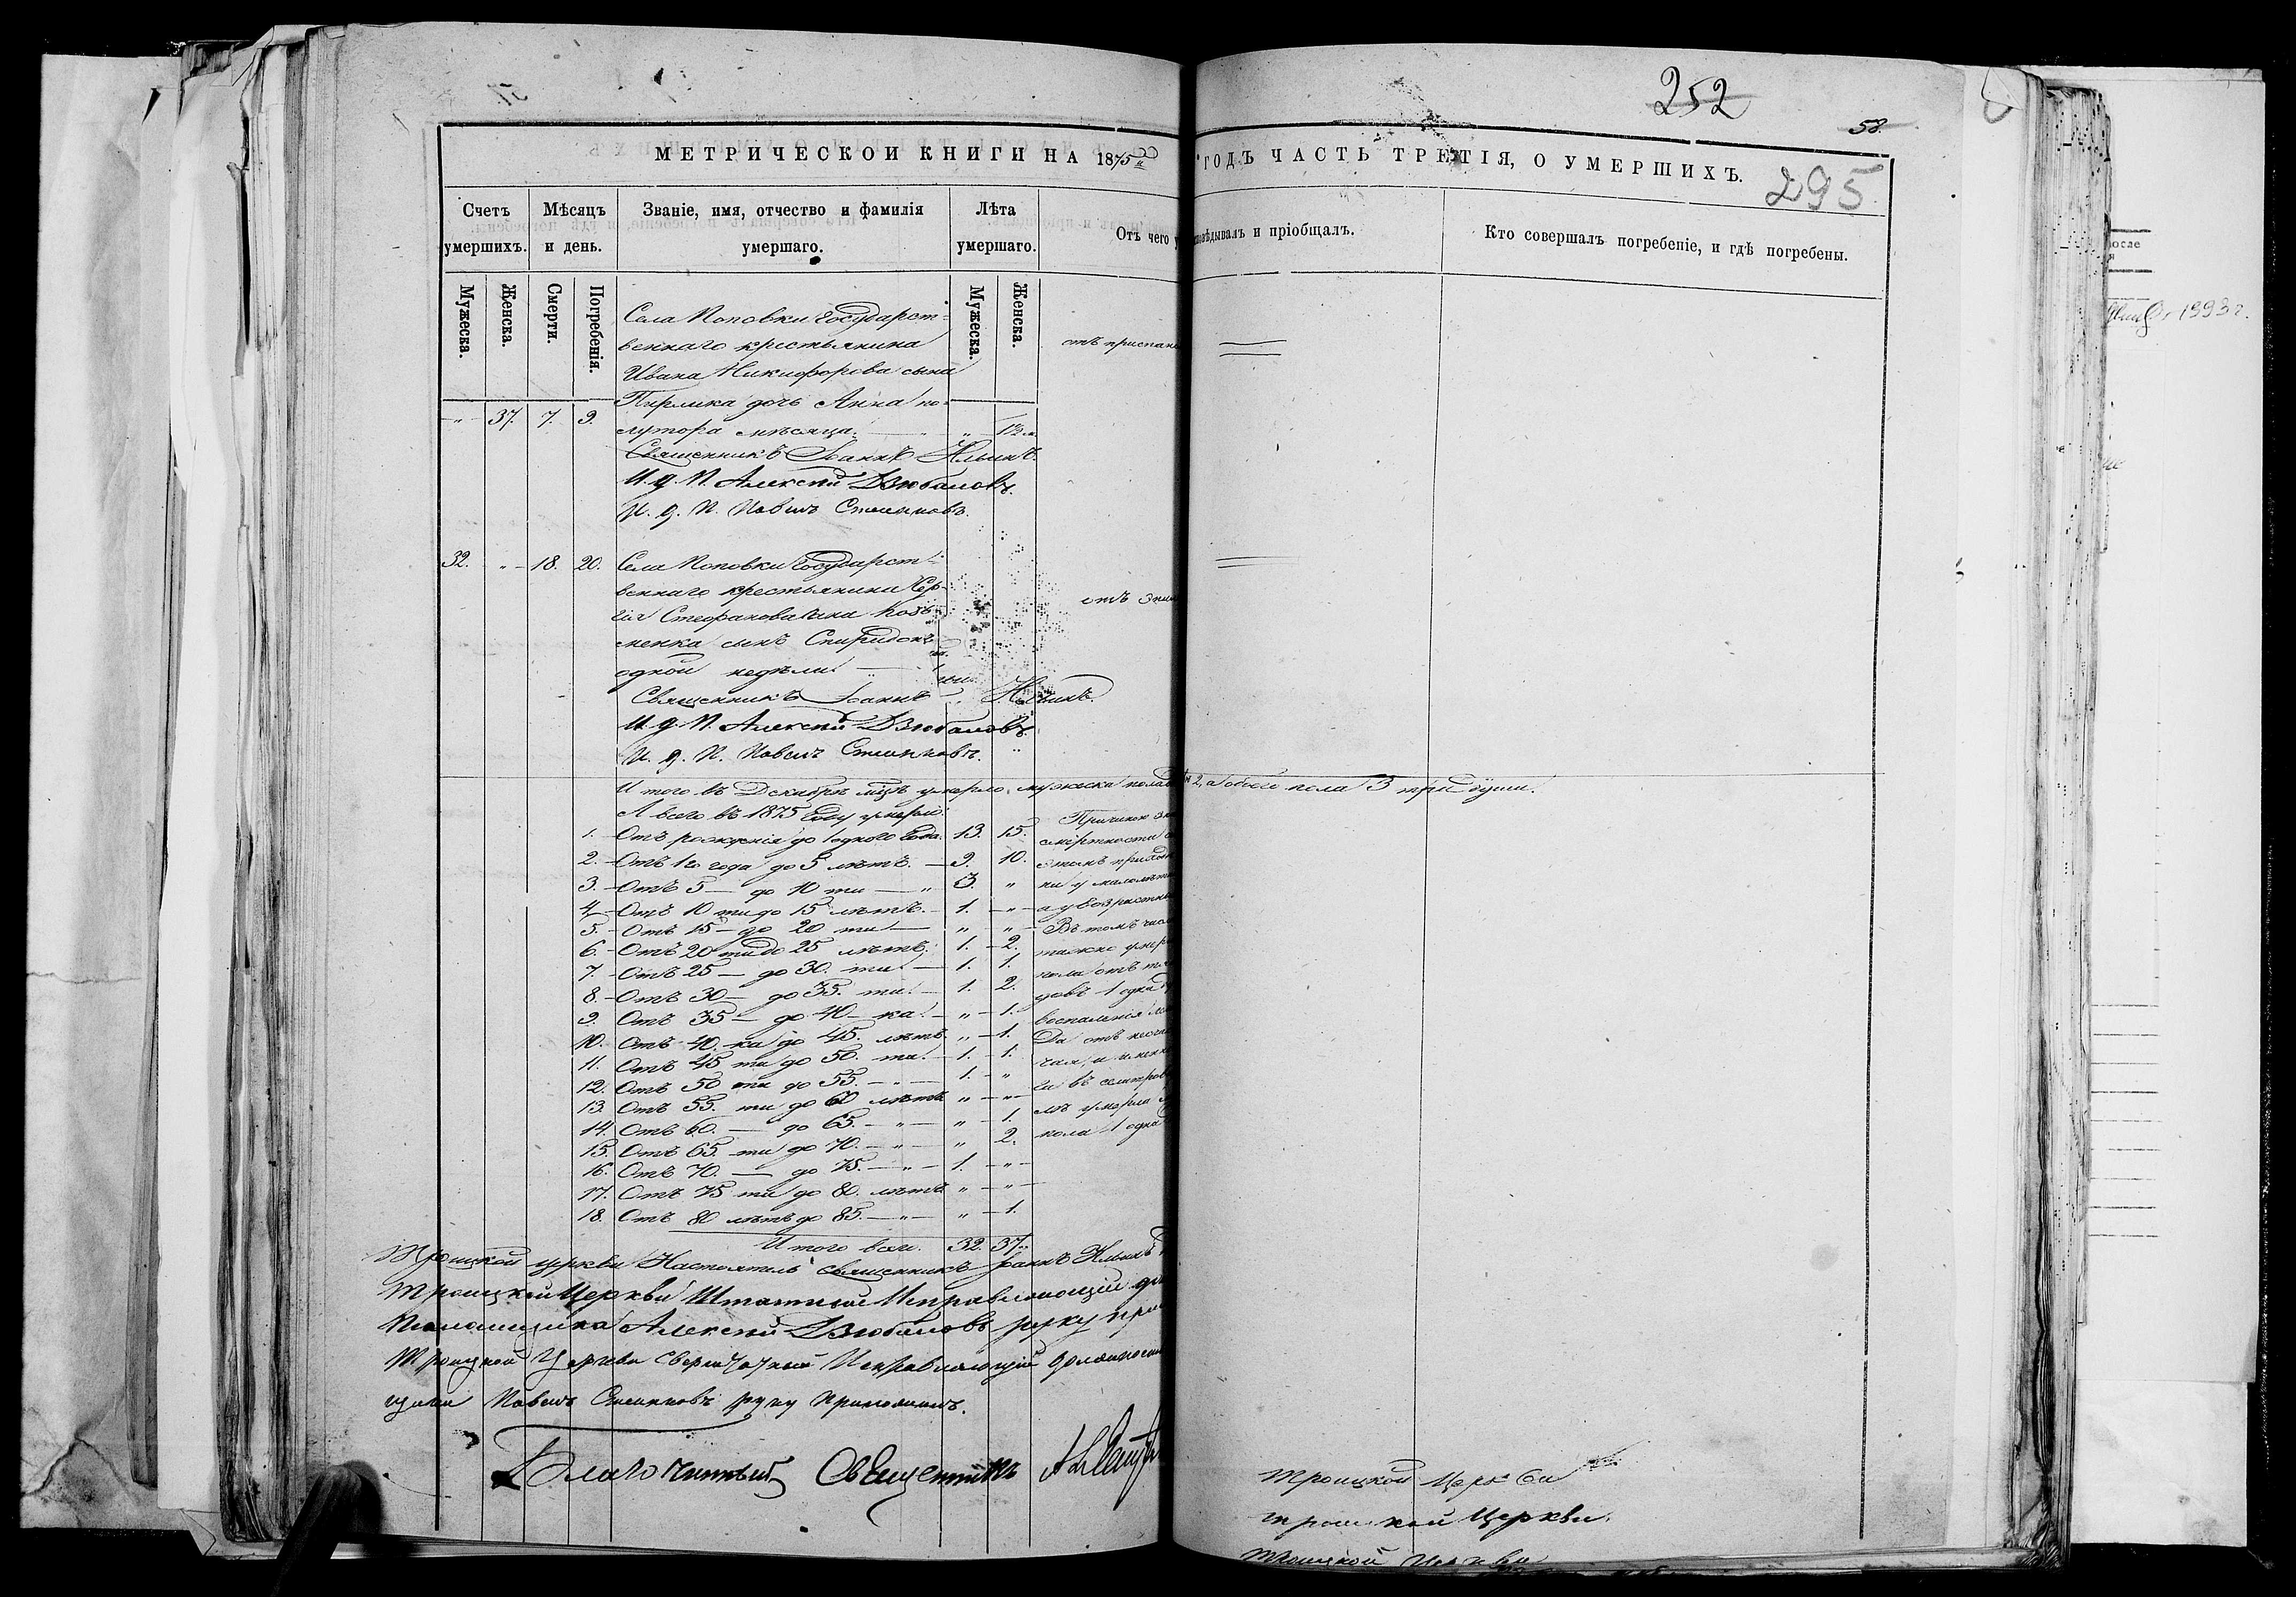 252
58.
МЕТРИЧЕСКОЙ КНИГИ НА 1875й ГОДЪ ЧАСТЬ ТРЕТІЯ, О УМЕРШИХЪ.
295
Счетъ умершихъ.
Мѣсяцъ и день.
Званіе, имя, отчество и фамилія умершаго.
Лѣта умершаго.
Отъ чего
вѣдывалъ и пріобщалъ.
Кто совершалъ погребеніе, и гдѣ погребены.
Мужеска.
Женска.
Смерти.
Погребенія.
Мужеска.
Женска.
Села Поповки Государст-
веннаго крестьянина
Ивана Никифорова сына
дочь Анна по-
" 37. 7. 9. лутора мѣсяца. " 1½ м.
Священникъ Іоаннъ Ильинъ.
И. д. П. Алексій Дзюбановъ.
И. д. П. Павелъ
32. " 18. 20. Села Поповки Государст-
веннаго крестьянина Сер-
гія Стефанова сына Козь-
менка сынъ Спиридонъ
одной недѣли.
Священникъ Іоаннъ Ильинъ.
И. д. П. Алексій Дзюбановъ.
И. д. П. Павелъ
отъ
отъ
Итого въ Декабрѣ мцѣ умерло мужеска пола 2, а обоего пола 3 три души.
А всего въ 1875 году умерло:
1. Отъ рожденія до 1 одного года. 13. 15.
2. Отъ 1го года до 5 лѣтъ. 9. 10.
3. Отъ 5 — до 10 ти — " 3. "
4. Отъ 10 ти до 15 лѣтъ. 1. "
5. Отъ 15 — до 20 ти — " "
6. Отъ 20 ти до 25 лѣтъ. 1. 2.
7. Отъ 25 — до 30. ти. 1. 1.
8. Отъ 30 — до 35. ти. 1. 2.
9. Отъ 35 — до 40 — ка. " 1.
10. Отъ 40. ка до 45. лѣтъ. " 1.
11. Отъ 45 ти до 50. ти. 1. 1.
12. Отъ 50 ти до 55. — " — 1. "
13. Отъ 55. ти до 60 лѣтъ " "
14. Отъ 60. — до 65. — " — " 1.
15. Отъ 65. ти до 70. — " — " 2.
16. Отъ 70. — до 75. — " — 1. "
17. Отъ 75 ти до 80. лѣтъ " "
18. Отъ 80 лѣтъ до 85. — " — " 1.
Итого всего. 32. 37.
смертности
у малолѣт
Въ томъ чис
пола отъ
1 одна
воспаленія
Да отъ
умерла
пола 1 одна
Троицкой церкви Настоятель священникъ Іоаннъ Ильинъ
Троицкой Церкви Штатный Исправляющій
Псаломщика Алексій Дзюбановъ руку
Троицкой Церкви Исправляющій должность
Павелъ руку приложилъ.
Благочинный Священникъ
Троицкой Церкви
Троицкой Церкви.
Троицкой Церкви
осле
1993 г.